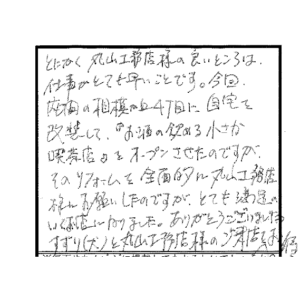 とにかく丸山工務店様の良いところは、
仕事がとても早いことです。今回
相模 47日に、自宅を
改装して、『お酒の飲める小さな
喫茶店』をオープンさせたのですが、
そのリフォームを全面的に丸山工務店
様にお願いしたのですが、とても満足の
いくお店になりました。ありがとうございました
(犬)と丸山工務店様のご来店